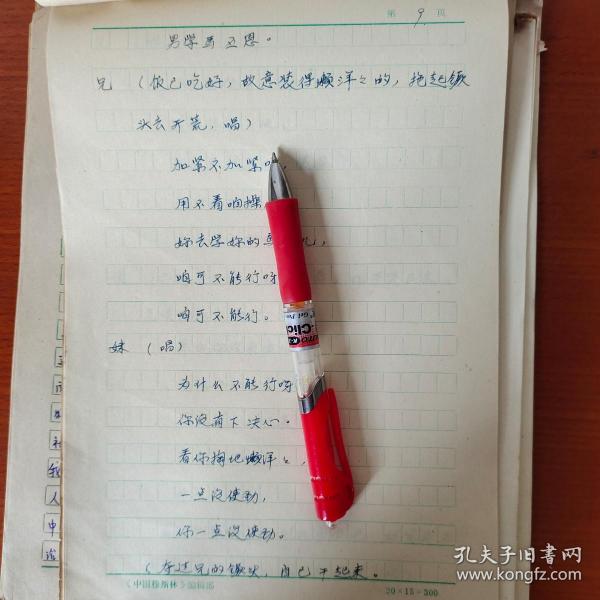 第 9 页
男学马玉恩。
兄 （饭已吃好，故意装得懒洋々的，抱起镢
头去开荒，唱）
加紧不加紧
用不着咱操
妳去学妳的
咱可不能行呀
咱可不能行。
妹 （唱）
为什么不能行呀
你没有下决心。
看你掏地懒洋々，
一点没使劲，
你一点没使劲。
（夺过兄的镢头，自己干起来。
《中国穆斯林》编辑部
20×15=300
Gel Pen
Click
人
中
孔夫子旧书网
www.kongfz.com